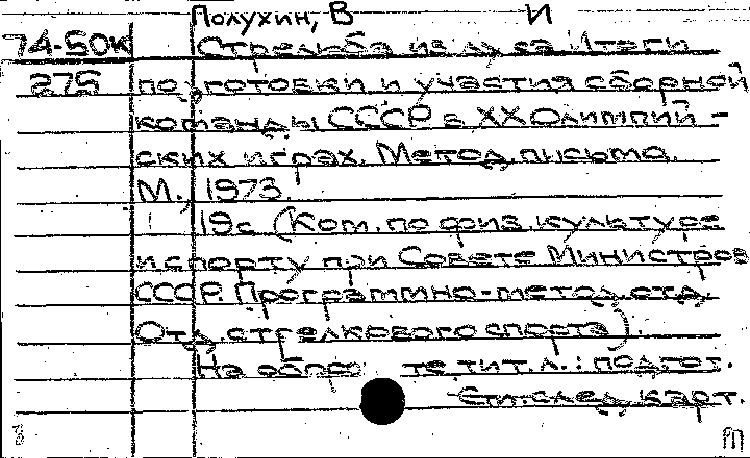 Полухин, В И
74-50к Стрельба из лука Итоги
275 подготовки и участия сборной
команды СССР в XX Олимпий-
ских играх. Метод. письмо.
М., 1973.
19с (Ком. по физ. культуре
и спорту при Совете Министров
СССР. Программно-метод. отд.
Отд. стрелкового спорта).
На обороте тит. л.: подгот.
См. след. карт.